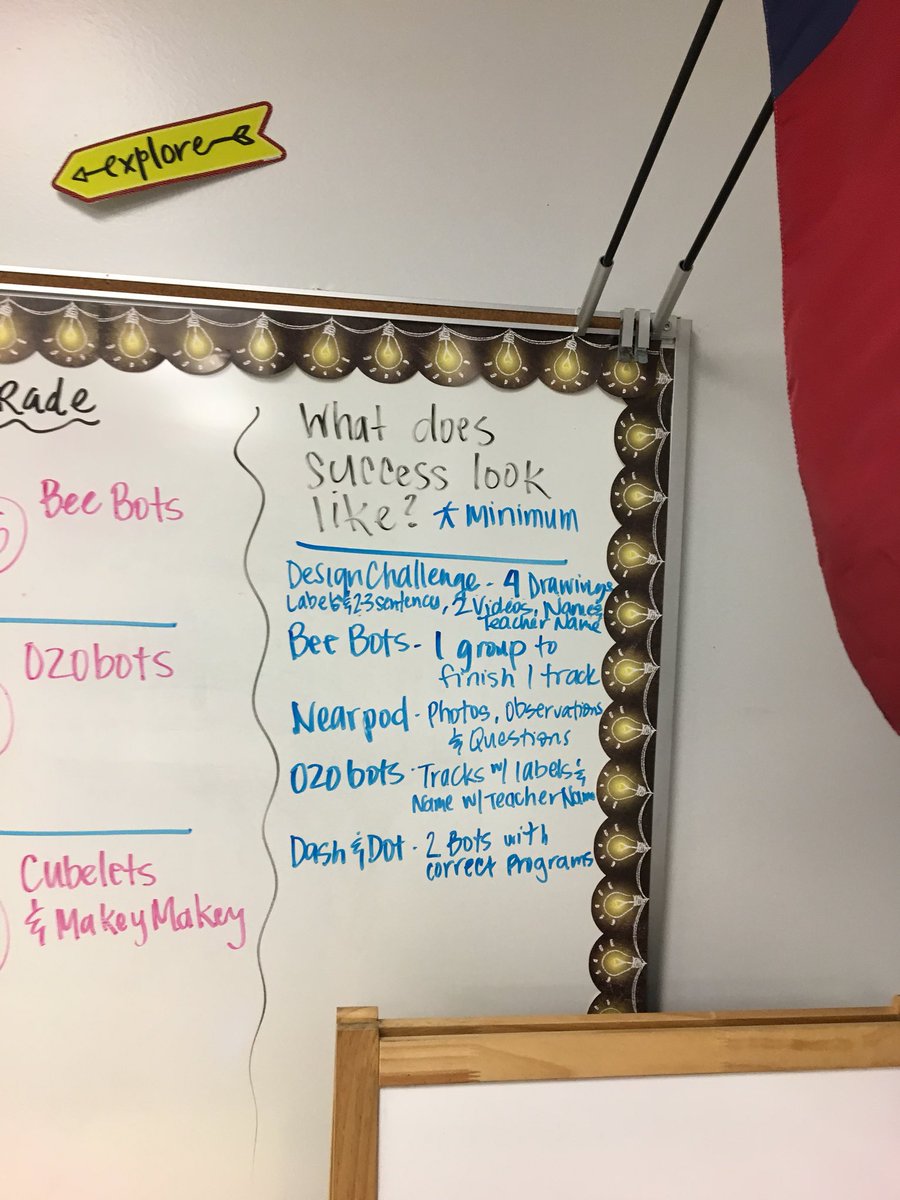 explore
Rade
Bee Bots
Ozobots
Cubelets
& MakeyMakey
What does
success look
like? * Minimum
Design Challenge - 4 Drawings
Labels & 2-3 sentences, 2 Videos, Names
Teacher Name
Bee Bots - 1 group to
finish 1 track
Nearpod - Photos, Observations
& Questions
Ozobots - Tracks w/ labels &
Name w/ Teacher Name
Dash & Dot - 2 Bots with
correct Programs